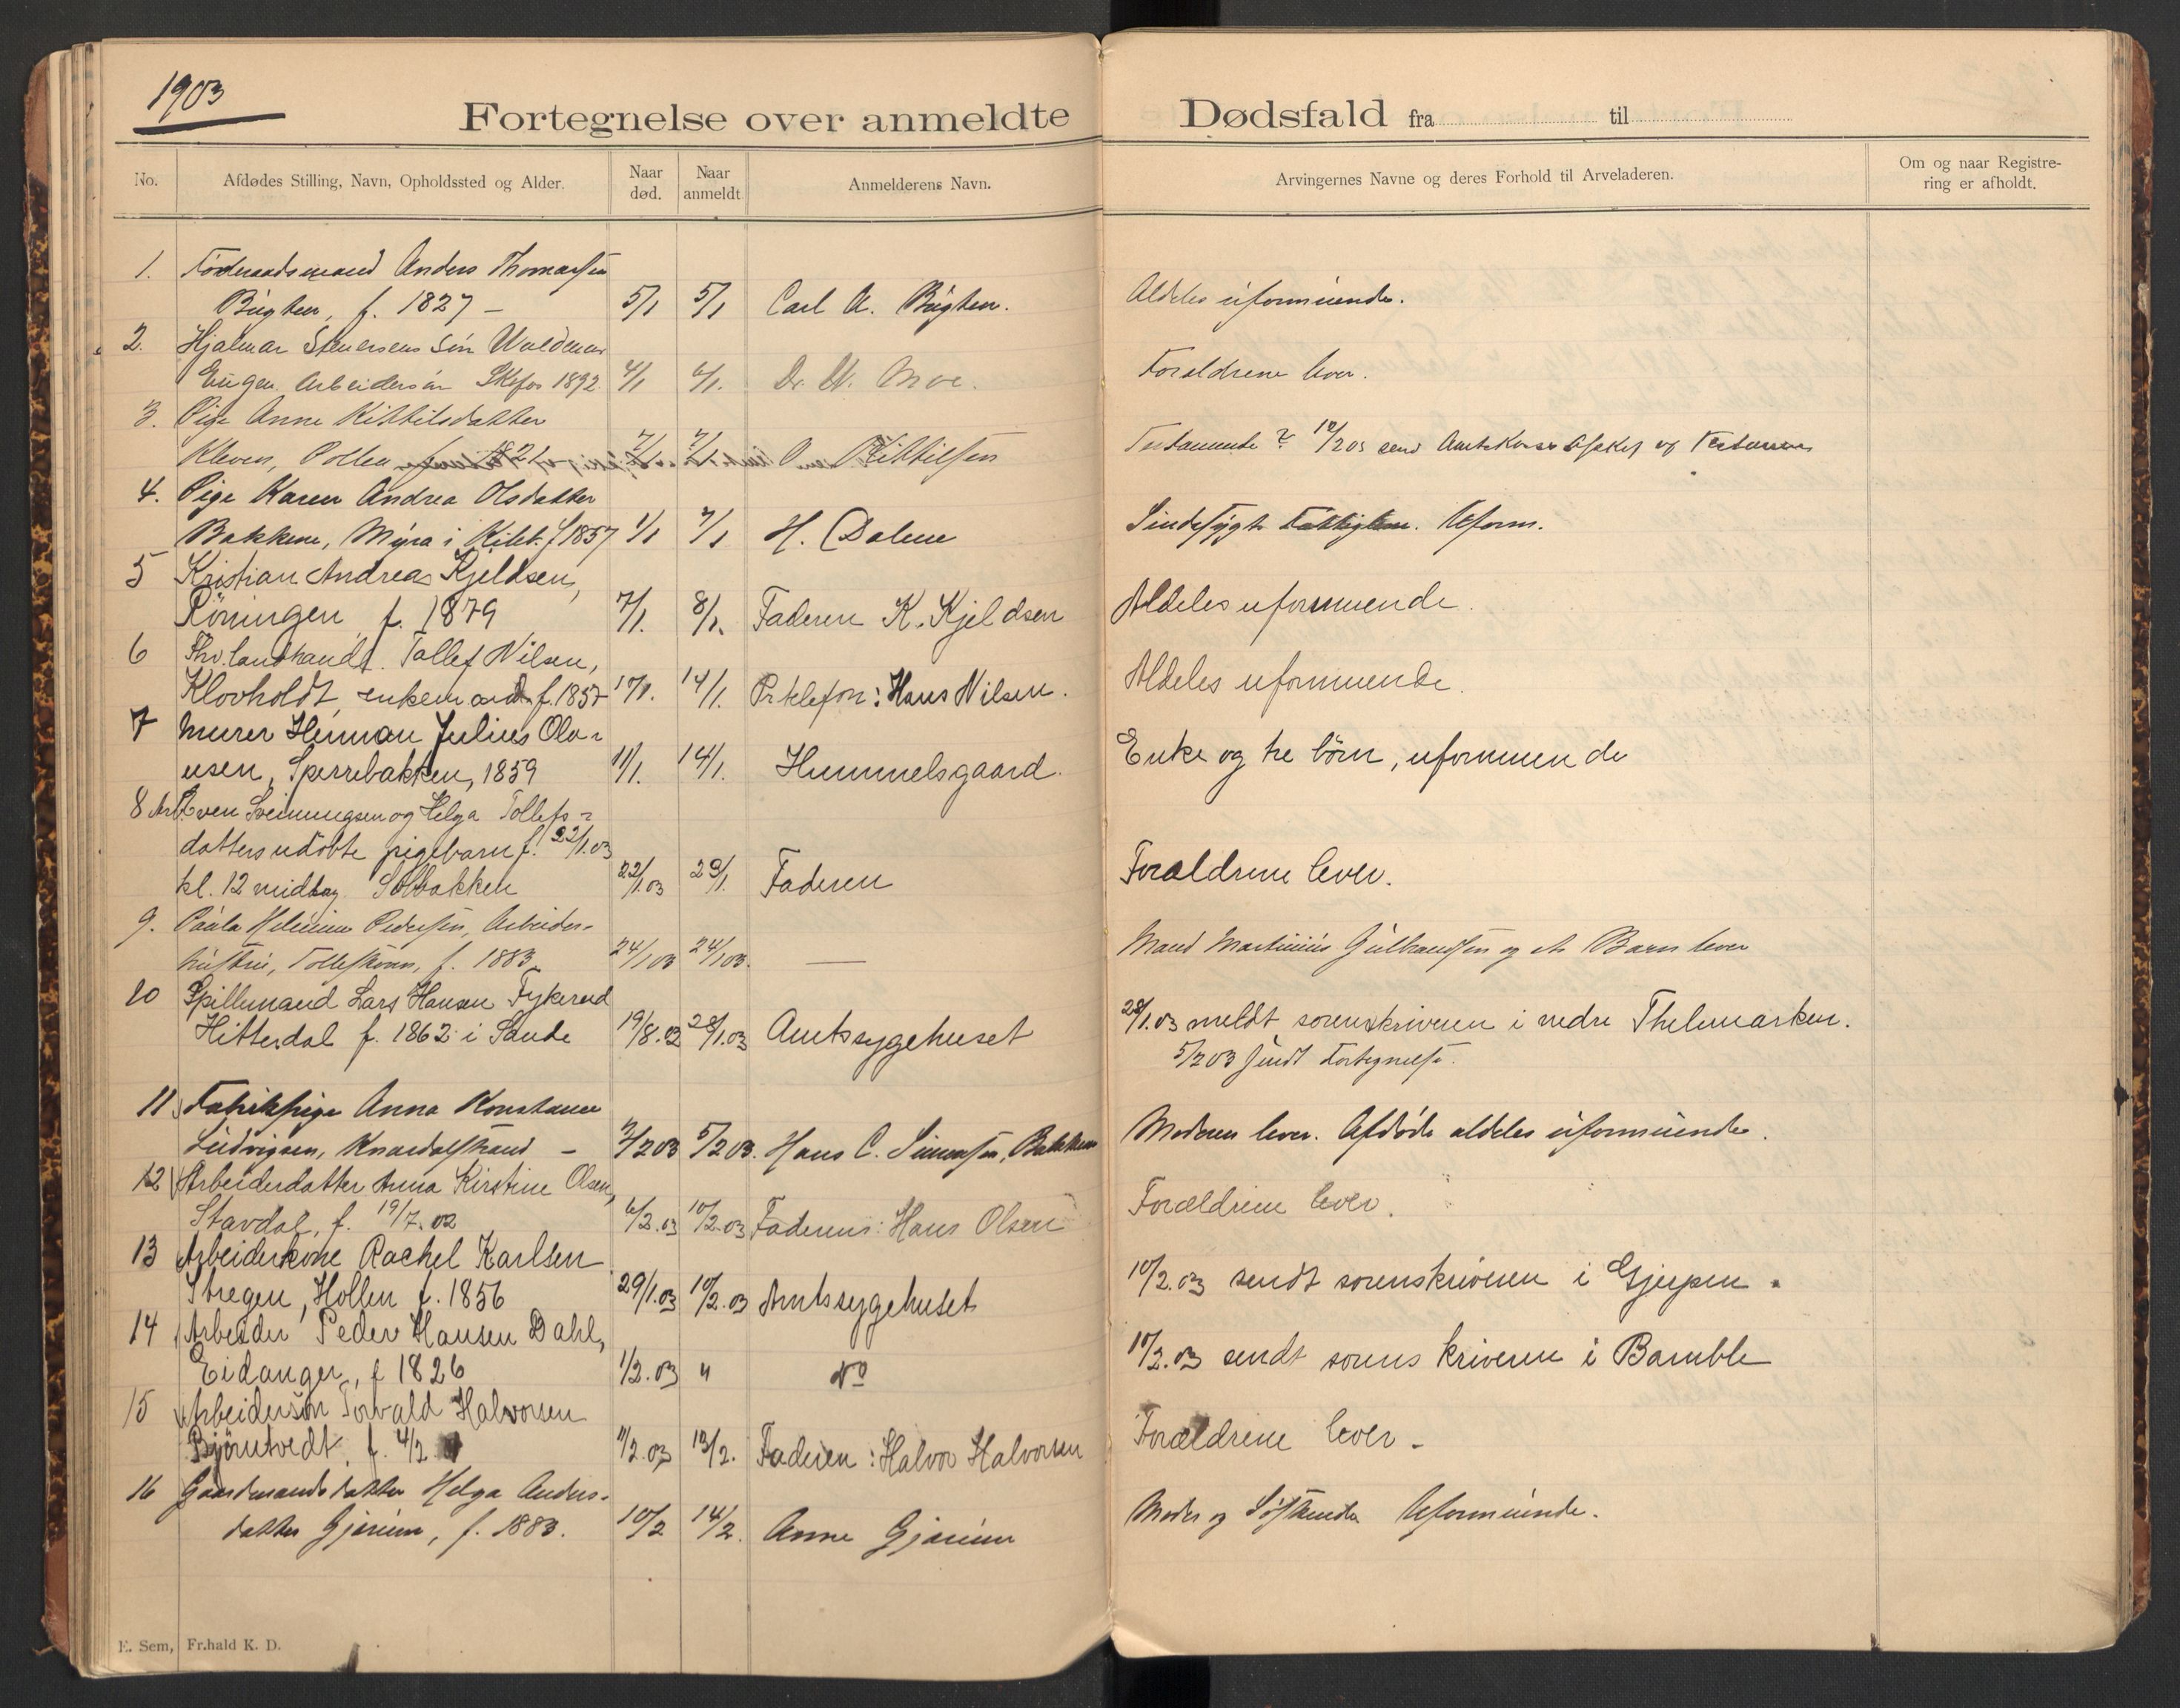 1903
Fortegnelse over anmeldte Dødsfald fra til
No.
Afdødes Stilling, Navn, Opholdssted og Alder.
Naar død.
Naar anmeldt
Anmelderens Navn.
Arvingernes Navne og deres Forhold til Arveladeren.
Om og naar Registre-
ring er afholdt.
1. Föderaadsmand Anders Thomassen
Bugten, f. 1827 – 5/1 5/1 Carl A. Bugten. Aldeles uformuende.
2. Hjalmar Stenersens sön Waldemar
Eugen. Arbeidersön Skotfos 1892 4/1 6/1. Dr. Moe. Forældrene lever.
3. Pige Anne Kittilsdatter
Kleven, Pollen f. 1821 7/1 Kittilsen Testamente? 12/2 03 send Amtet
4. Pige Karen Andrea Olsdatter
Bakkene, Myra i Kileb. f 1857 1/1 7/1 H. Dalene Sindssyg Fattiglem. Uform.
5 Kristian Andreas Kjeldsen,
Röningen f. 1879 7/1. 8/1. Faderen K. Kjeldsen Aldeles uformuende.
6 Fhv. landhandl. Tollef Nilsen,
Klovholdt, enkemand f. 1857 14/1. Pr telefon: Hans Nilsen. Aldeles uformuende.
7 Murer Herman Julius Ola-
usen, Sperrebakken, 1859 11/1. 14/1. Hummelsgaard. Enke og tre börn, uformuende
8 Arb. Even Sveinungsen og Helga Tollefs-
datters udöbte pigebarn f. 22/1.03
kl. 12 middag Solbakken 22/1.03 23/1. Faderen Forældrene lever.
9. Paula Helmine Pedersen, Arbeider-
hustru, f. 1883 24/1 03 24/1 03. — Mand Martinius Gulbrandsen og et Barn lever
10 Spillemand Lars Hansen Fykerud
Hitterdal f. 1862 i Sande 19/8.02 28/1.03 Amtssygehuset 28/1.03 meldt sorenskriveren i nedre Thelemarken.
5/2 03 sendt Fortegnelse.
11. Fabrikpige Anna Konstanse
Ludvigsen, Knardalstrand – 3/2 03 5/2 03. Hans C. Simonsen, Bakken Moderen lever. Afdöde aldeles uformuende.
12 Arbeiderdatter Anna Kirstine Olsen,
Stavdal, f. 19/7.02 6/2.03 10/2.03 Faderen: Hans Olsen Forældrene lever.
13 Arbeiderkone Rachel Karlsen
Stregen, Hollen f. 1856 29/1.03 10/2.03 Amtssygehuset 10/2.03 sendt sorenskriveren i Gjerpen.
14 Arbeider Peder Hansen Dahl,
Eidanger, f 1826 1/2.03 " do 10/2.03 sendt sorenskriveren i Bamble
15 Arbeidersön Torvald Halvorsen
Björntvedt, f. 4/2 11/2.03 13/2. Faderen: Halvor Halvorsen Forældrene lever.
16 Gaardmandsdatter Helga Anders-
datter Gjerum, f. 1883. 10/2 14/2. Anne Gjerum Moder og Söskende Uformuende.
E. Sem, Fr.hald K. D.